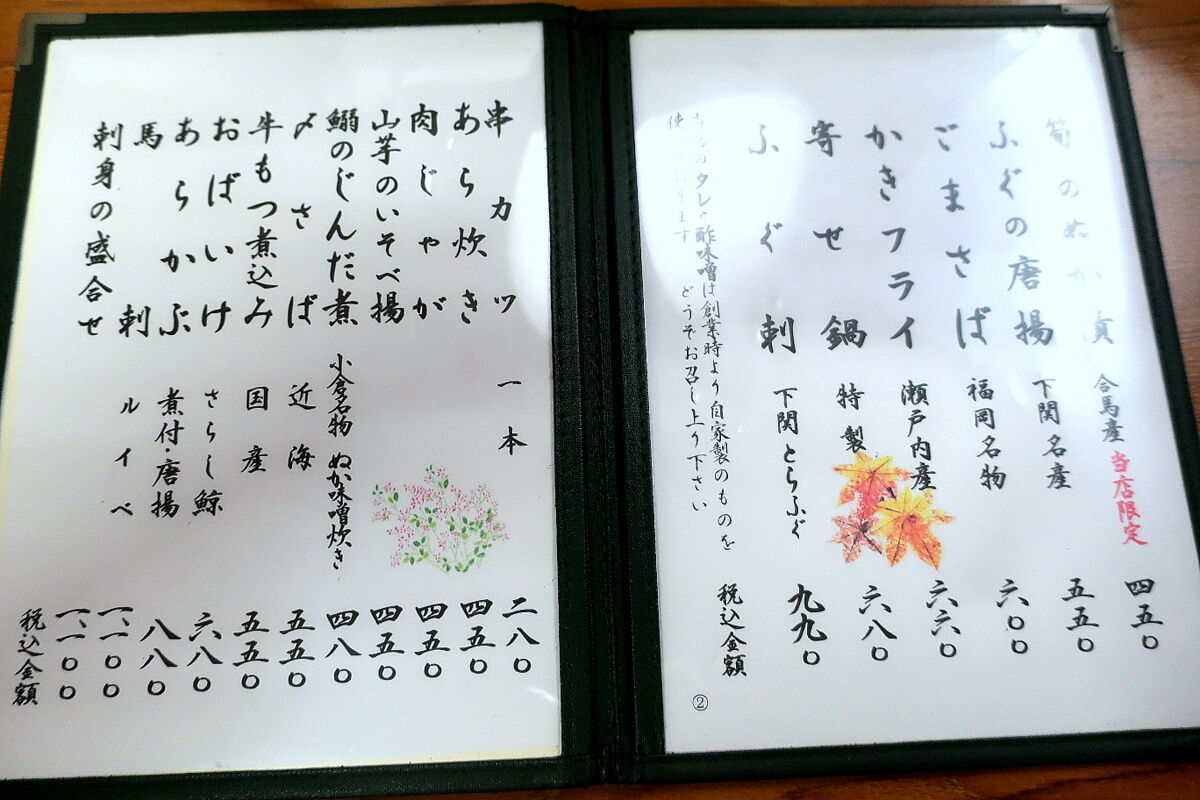 筍のぬか漬 合馬産 当店限定 四五〇
ふぐの唐揚 下関名産 五五〇
ごまさば 福岡名物 六〇〇
かきフライ 瀬戸内産 六六〇
寄せ鍋 特製 六八〇
ふぐ刺 下関とらふぐ 九九〇
当店のタレと酢味噌は創業時より自家製のものを
使っております どうぞお召し上り下さい
税込金額
②
串カツ 一本 二八〇
あら炊き 四五〇
肉じゃが 四五〇
山芋のいそべ揚 四五〇
鰯のじんだ煮 小倉名物 ぬか味噌炊き 四八〇
〆さば 近海 五五〇
牛もつ煮込み 国産 五五〇
おばいけ さらし鯨 六八〇
あらかぶ 煮付・唐揚 八八〇
馬刺 ルイベ 一、一〇〇
刺身の盛合せ 一、一〇〇
税込金額